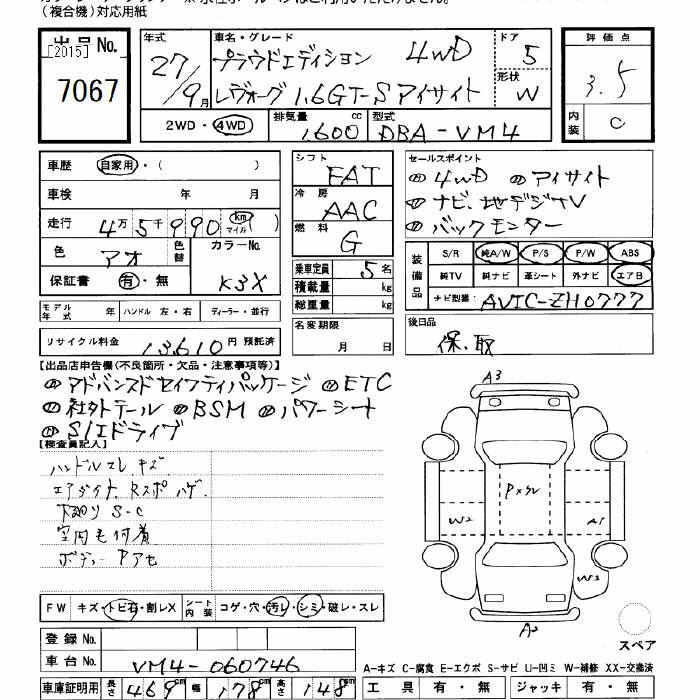 (複合機)対応用紙
出品No.
[2015]
7067
年式
27/9月
車名・グレード
プラウドエディション 4WD
レヴォーグ 1.6GT-Sアイサイト
ドア
5
形状
W
2WD・4WD
排気量
1,600 cc
型式
DBA-VM4
評価点
3.5
内装
C
車歴 自家用・( )
車検 年 月
走行 4万5千990 km マイル( )
色 アオ 色替
カラーNo. K3X
保証書 有・無
モデル年式 年 ハンドル 左・右 ディーラー・並行
リサイクル料金 13,610円 預託済
シフト
FAT
冷房
AAC
燃料
G
乗車定員 5名
積載量 kg
総重量 kg
名変期限
月 日
セールスポイント
4WD アイサイト
ナビ、地デジTV
バックモンター
装備品
S/R 純A/W P/S P/W ABS
純TV 純ナビ 革シート 外ナビ エアB
ナビ型番 AVIC-ZH0777
後日品
保、取
【出品店申告欄(不良箇所・欠品・注意事項等)】
アドバンスドセイフティパッケージ ETC
社外テール BSM パワーシート
S/Iドライブ
【検査員記入】
ハンドルスレ、キズ
Rスポ ハゲ
下廻り S-C
ボディー Pアセ
FW キズ・トビ石・割レX
シート内装 コゲ・穴・汚レ・シミ・破レ・スレ
登録No.
車台No. VM4-060746
車庫証明用 長さ 469cm 幅 178cm 高さ 148cm
A3
W2
A1
スペア
A-キズ C-腐食 E-エクボ S-サビ U-凹ミ W-補修 XX-交換済
工具 有・無 ジャッキ 有・無